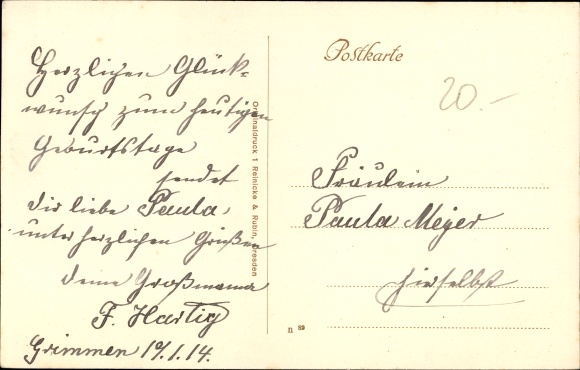 Herzlichen Glück-
wunsch zum heutigen
Geburtstage
sendet
dir liebe Paula,
unter herzlichen Grüßen
deine Großmama
F. Hartig
Grimmen 19.1.14.
Originaldruck 1 Reinicke & Rubin, Dresden
Postkarte
20.-
Fräulein
Paula Meyer
hierselbst
n 89